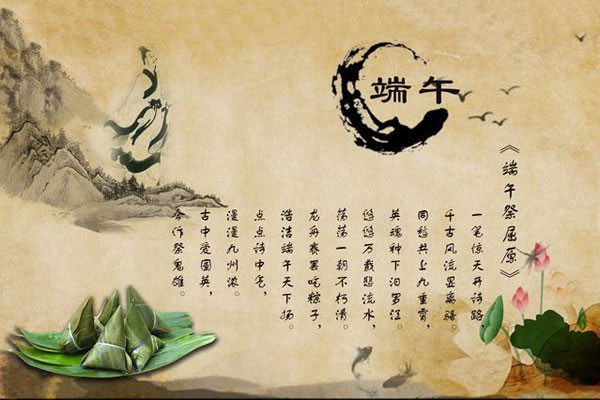 端午
《端午祭屈原》
一笔惊天开诗路，
千古风流是离骚。
同愁共上九重霄，
英魂种下汨罗江。
悠悠万载悲流水，
荡荡一朝不朽。
龙舟赛罢吃粽子，
浩洁端午天下扬。
点点诗中色，
漫漫九州浓。
古中爱国英，
今作祭鬼雄。